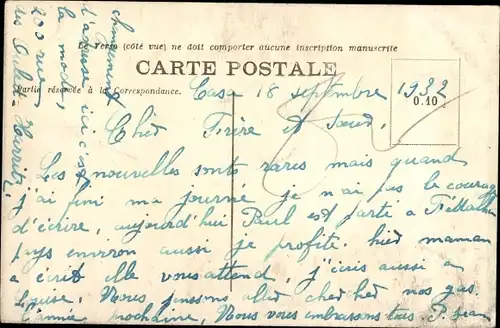 Le Verso (côté vue) ne doit comporter aucune inscription manuscrite
CARTE POSTALE
Partie réservée à la Correspondance.
0.10
Casa 18 septembre 1932
Chèr Frère et Sœur,
Les nouvelles sont rares mais quand
j'ai fini ma journée je n'ai pas le courage
d'écrire, aujourd'hui Paul est parti a
pays environ aussi je profite. hier maman
a écrit elle vous attend, j'écris aussi a
Nous pensons aller chercher nos gas
l'année prochaine, Nous vous embrassons tous. P. Jean
changement
d'adresse ici c'est
la mode,
200 rue